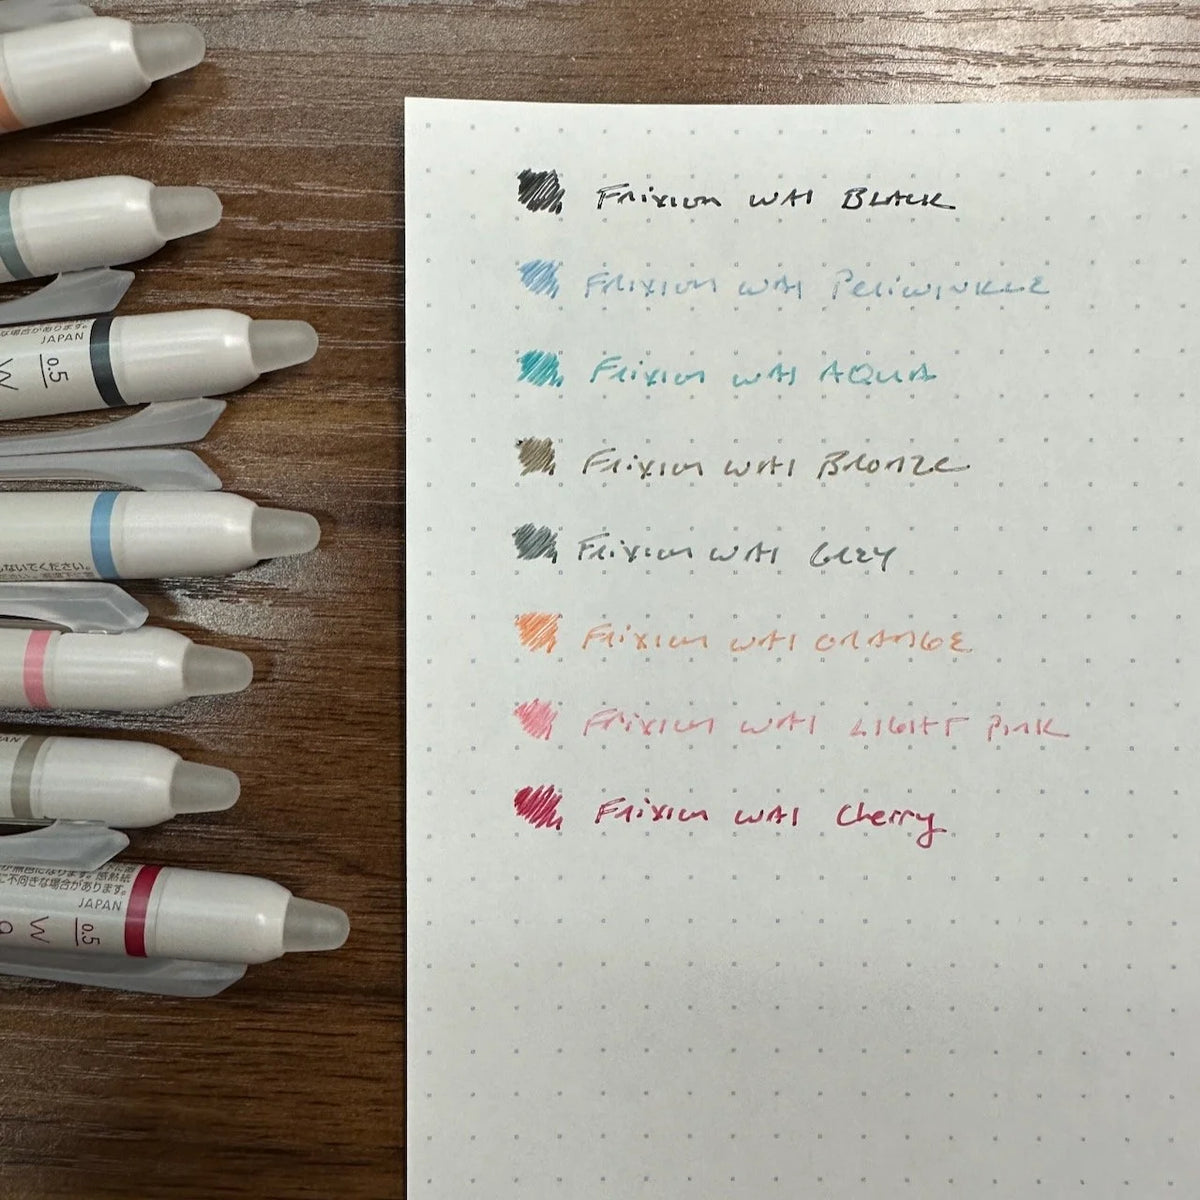 JAPAN
0.5
W
しないでください。
JAPAN
0.5
W
a
に不向きな場合があります。
Frixion WAI BLACK
Frixion WAI Periwinkle
Frixion WAI AQUA
Frixion WAI Bronze
Frixion WAI Grey
Frixion WAI ORANGE
Frixion WAI LIGHT Pink
Frixion WAI Cherry